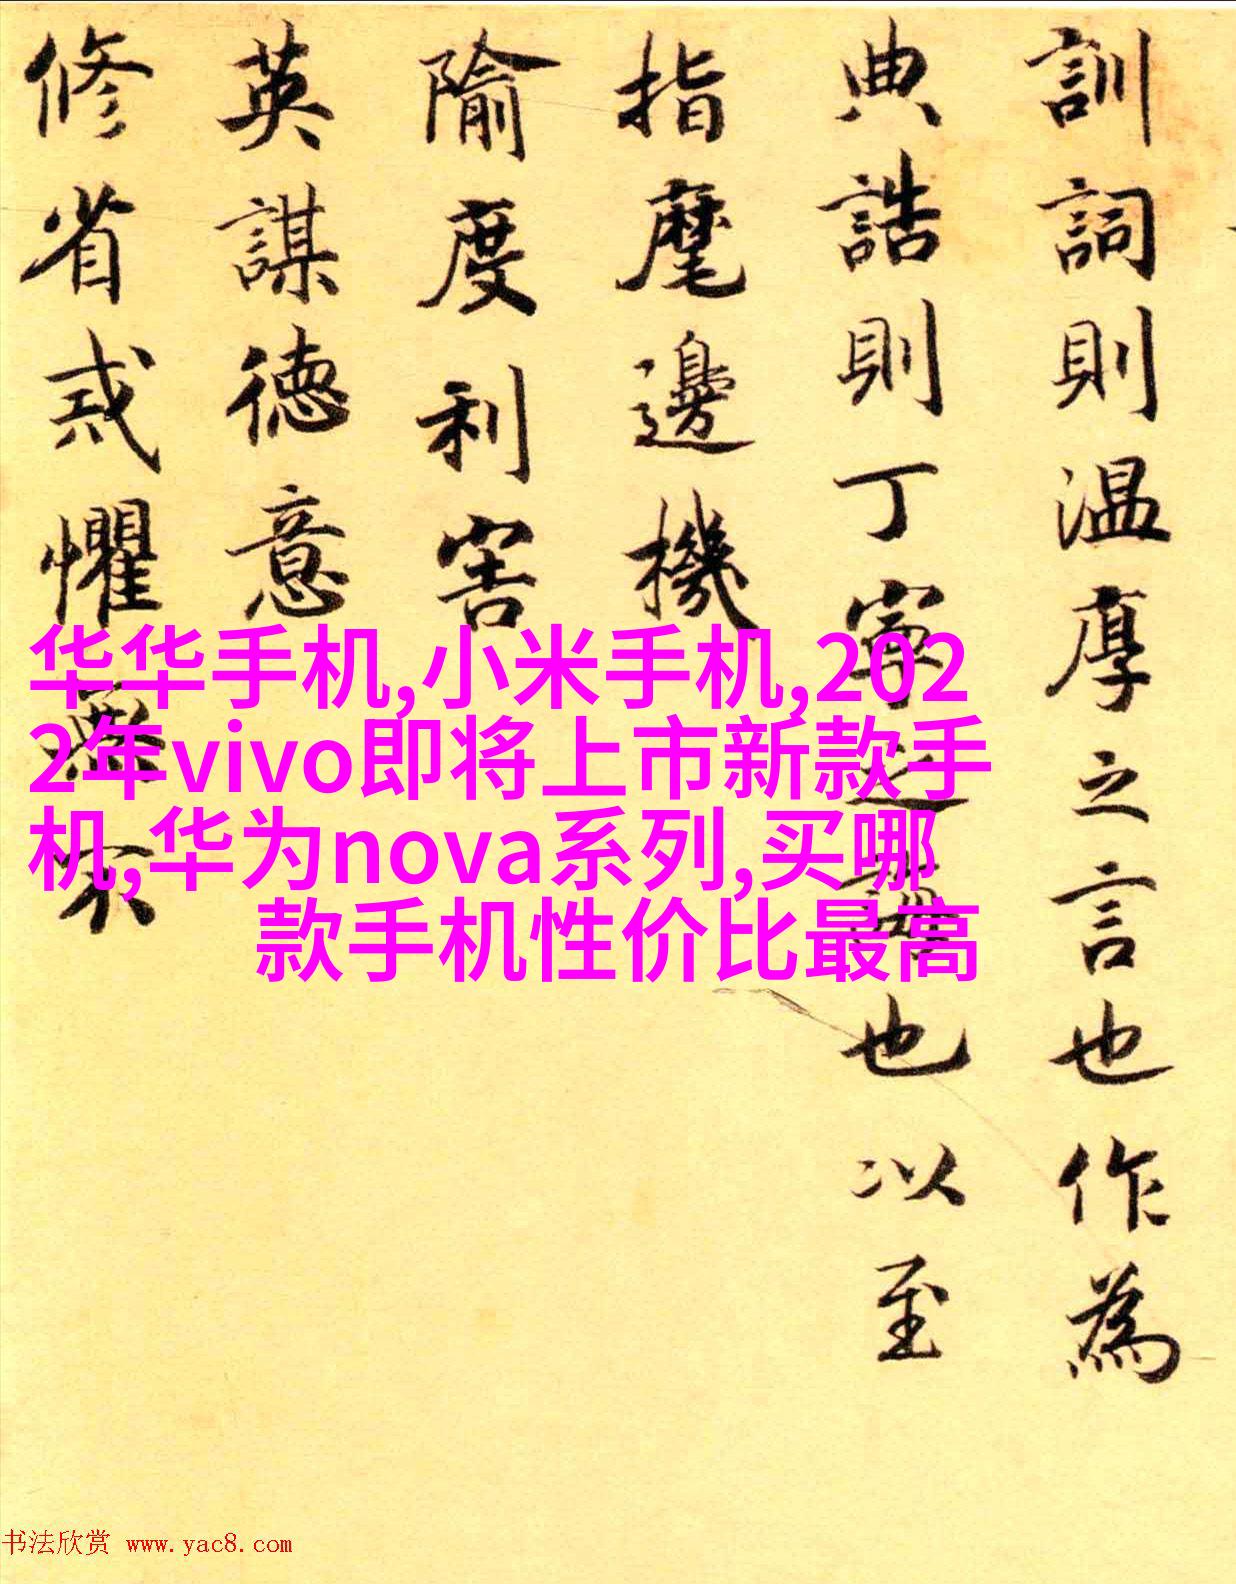 訓詞則温厚之言也作為
典誥則丁寧之也以至
指麾邊機
隃度利害
英謀德意
修省戒懼無不
华华手机,小米手机,202
2年vivo即将上市新款手
机,华为nova系列,买哪
款手机性价比最高
书法欣赏 www.yac8.com